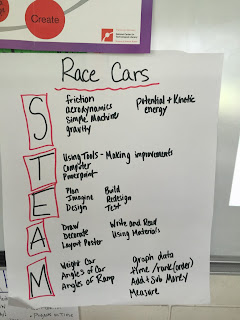 Create
Race Cars
S
friction
aerodynamics
Simple Machine
gravity
Potential + Kinetic
energy
T
Using Tools - Making improvements
Computer
Powerpoint
E
Plan
Imagine
Design
Build
Redesign
Test
A
Draw
Decorate
Layout Poster
Write and Read
Using Materials
M
Weight Car
Angles of Car
Angles of Ramp
graph data
time/rank (order)
Add + Sub Money
Measure